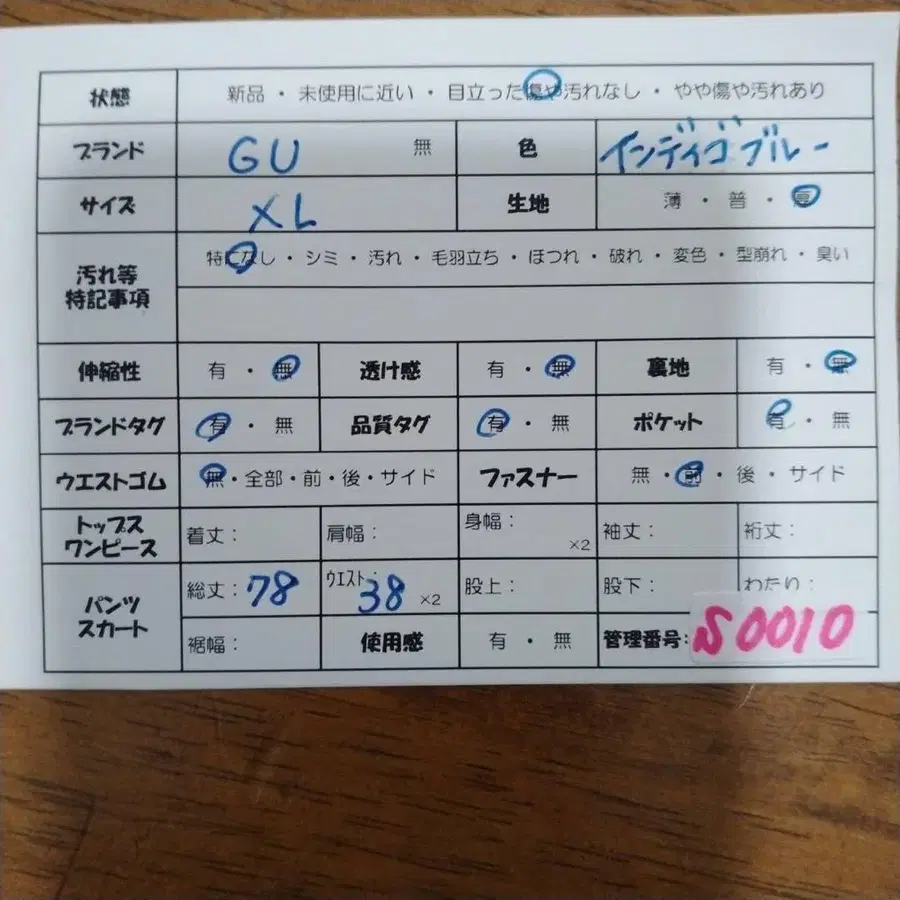 状態 新品 ・ 未使用に近い ・ 目立った傷や汚れなし ・ やや傷や汚れあり
ブランド GU 無 色 インディゴブルー
サイズ XL 生地 薄 ・ 普 ・ 厚
汚れ等
特記事項
特になし ・ シミ ・ 汚れ ・ 毛羽立ち ・ ほつれ ・ 破れ ・ 変色 ・ 型崩れ ・ 臭い
伸縮性 有 ・ 無 透け感 有 ・ 無 裏地 有 ・ 無
ブランドタグ 有 ・ 無 品質タグ 有 ・ 無 ポケット 有 ・ 無
ウエストゴム 無・全部・前・後・サイド ファスナー 無 ・ 前 ・ 後 ・ サイド
トップス
ワンピース
着丈: 肩幅: 身幅: ×2 袖丈: 裄丈:
パンツ
スカート
総丈: 78 ウエスト: 38 ×2 股上: 股下: わたり:
裾幅: 使用感 有 ・ 無 管理番号: S0010